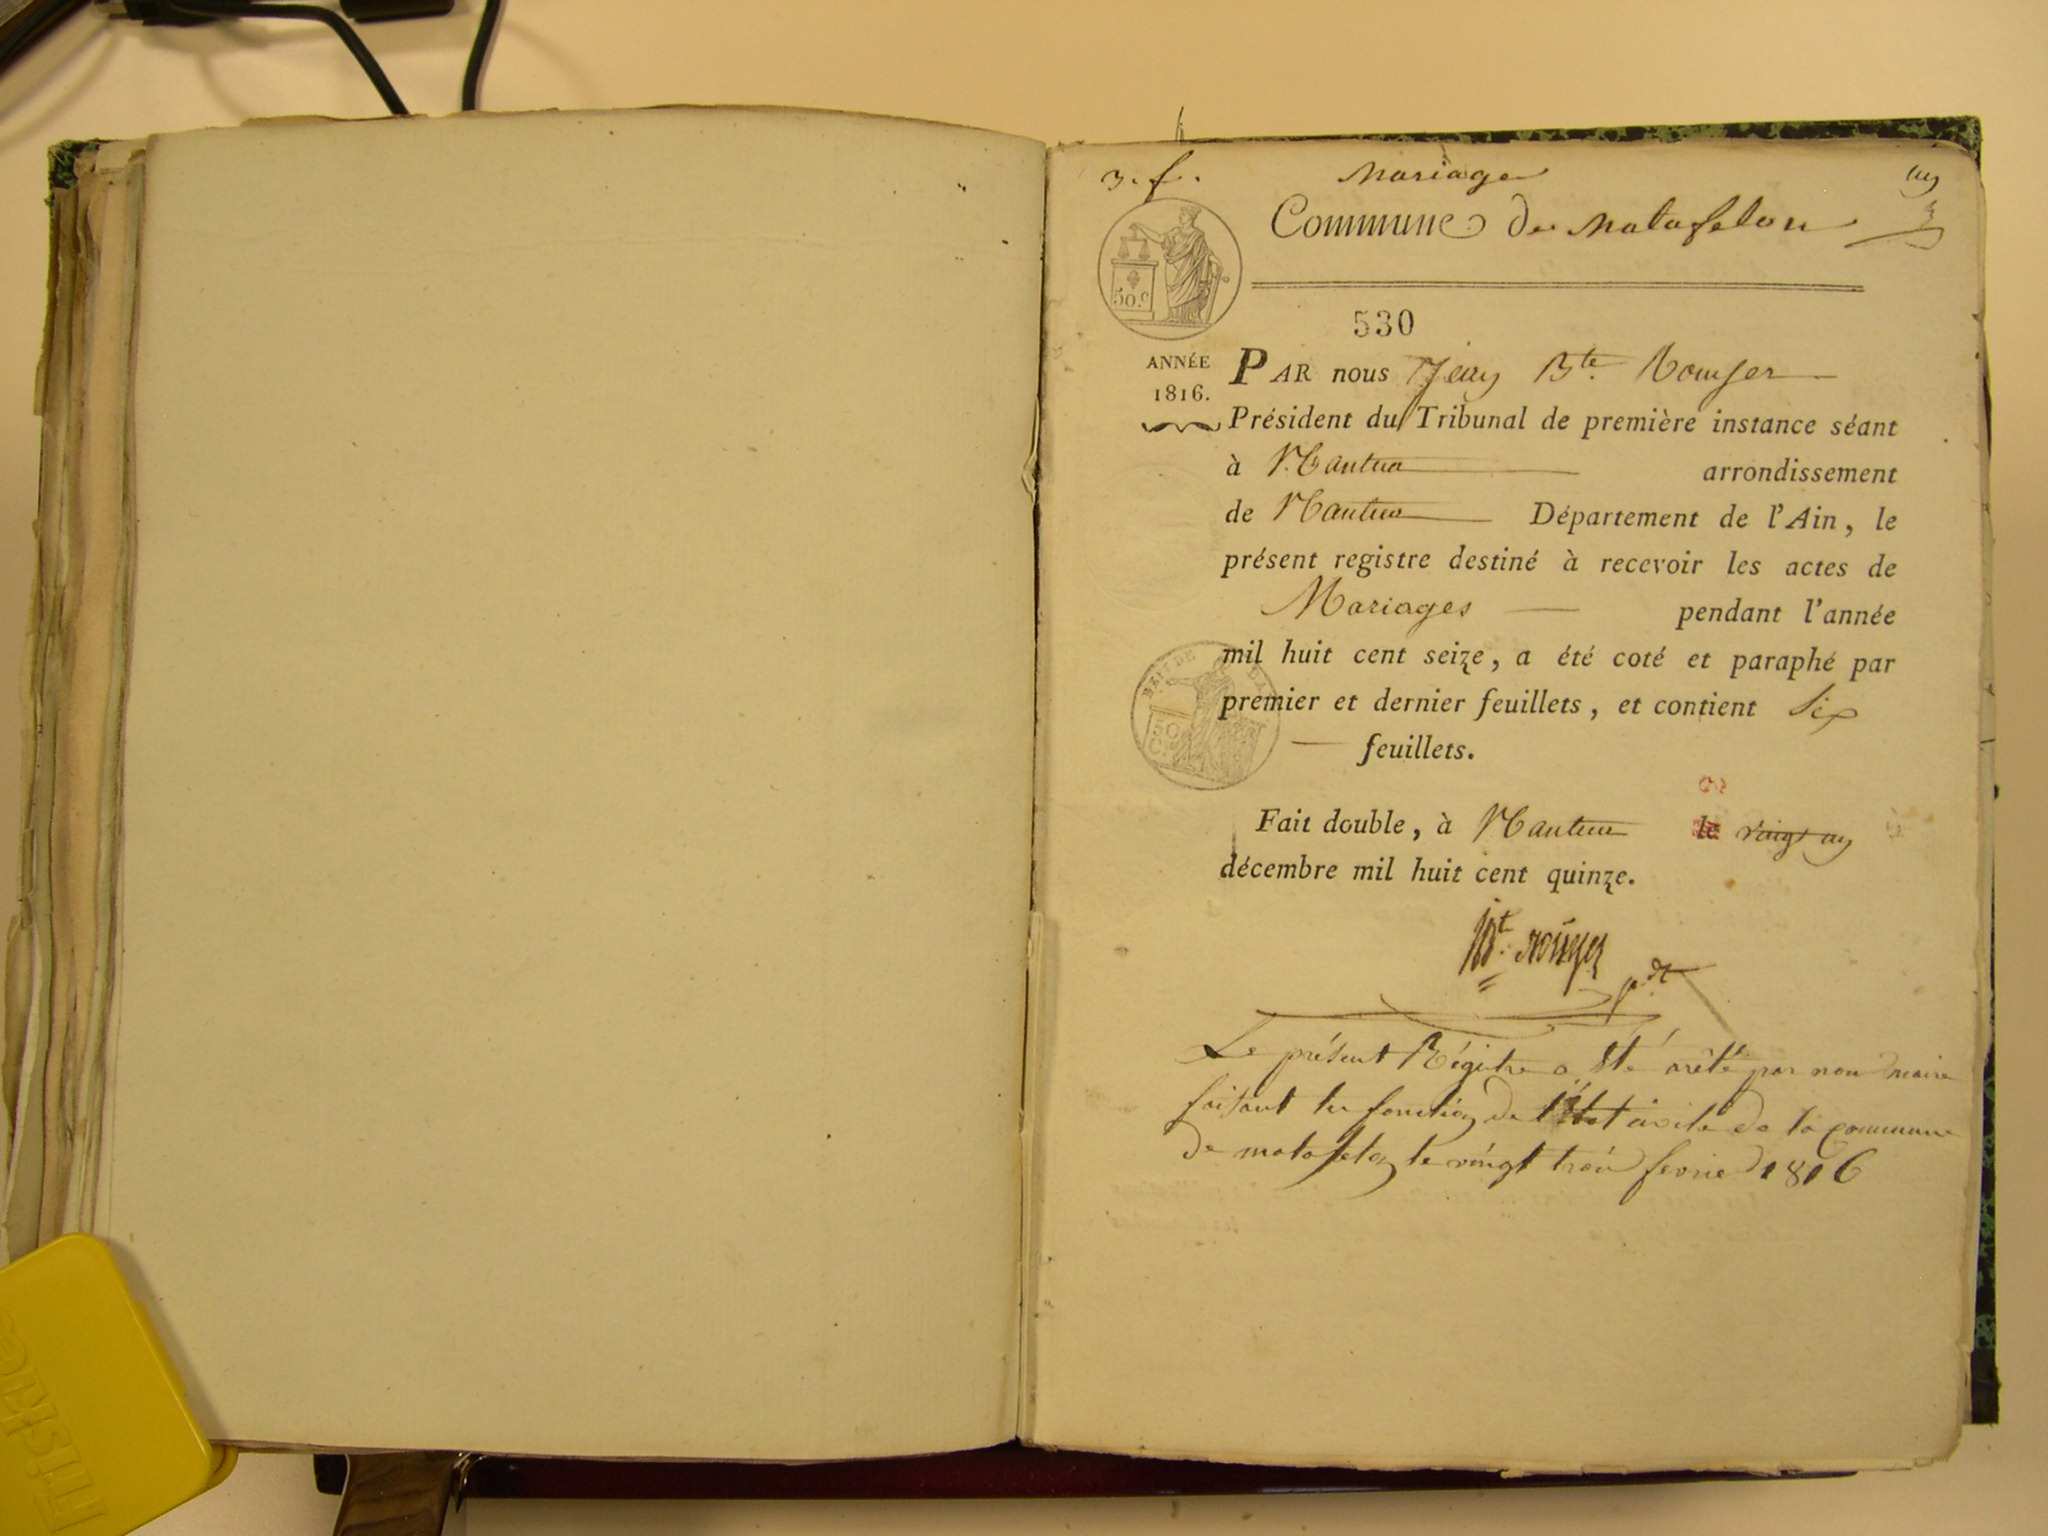 3. f.
Mariage
un
Commune de Matafelon
50 c
530
ANNÉE
1816.
PAR nous Jean Bte. Rouyer
Président du Tribunal de première instance séant
à Nantua arrondissement
de Nantua Département de l'Ain, le
présent registre destiné à recevoir les actes de
Mariages pendant l'année
mil huit cent seize, a été coté et paraphé par
premier et dernier feuillets, et contient six
50
C.
feuillets.
Fait double, à Nantua le vingt un
décembre mil huit cent quinze.
Bt. rouyer
pdt
Le présent Régitre a été arêté par nou maire
faisant les fonction de l'état civile de la commune
de matafelon le vingt troi fevrie 1816
TicTac